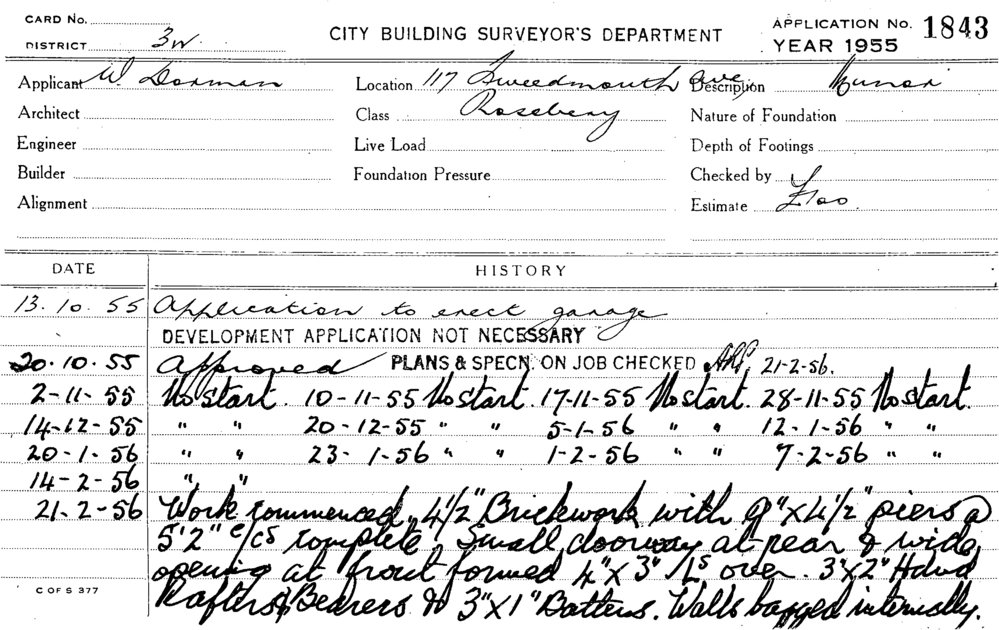 CARD No.
DISTRICT 3W.
CITY BUILDING SURVEYOR'S DEPARTMENT
APPLICATION No. 1843
YEAR 1955
Applicant W. Dorman Location 117 Tweedmouth Ave, Description Minor
Architect Class Rosebery Nature of Foundation
Engineer Live Load Depth of Footings
Builder Foundation Pressure Checked by
Alignment Estimate £100.
DATE HISTORY
13.10.55 Application to erect garage
DEVELOPMENT APPLICATION NOT NECESSARY
20.10.55 Approved PLANS & SPECN. ON JOB CHECKED 21-2-56.
2-11-55 No start. 10-11-55 No start. 17-11-55 No start. 28-11-55 No start.
14-12-55 " " 20-12-55 " " 5-1-56 " " 12-1-56 " "
20-1-56 " " 23-1-56 " " 1-2-56 " " 7-2-56 " "
14-2-56 " "
21-2-56 Work commenced, 4½" Brickwork with 9"x4½" piers @
5'2" c/cs complete, Small doorway at rear & wide
opening at front formed 4"x3" Ls over. 3"x2" Hdwd
Rafters & Bearers & 3"x1" Battens. Walls bagged internally.
C OF S 377